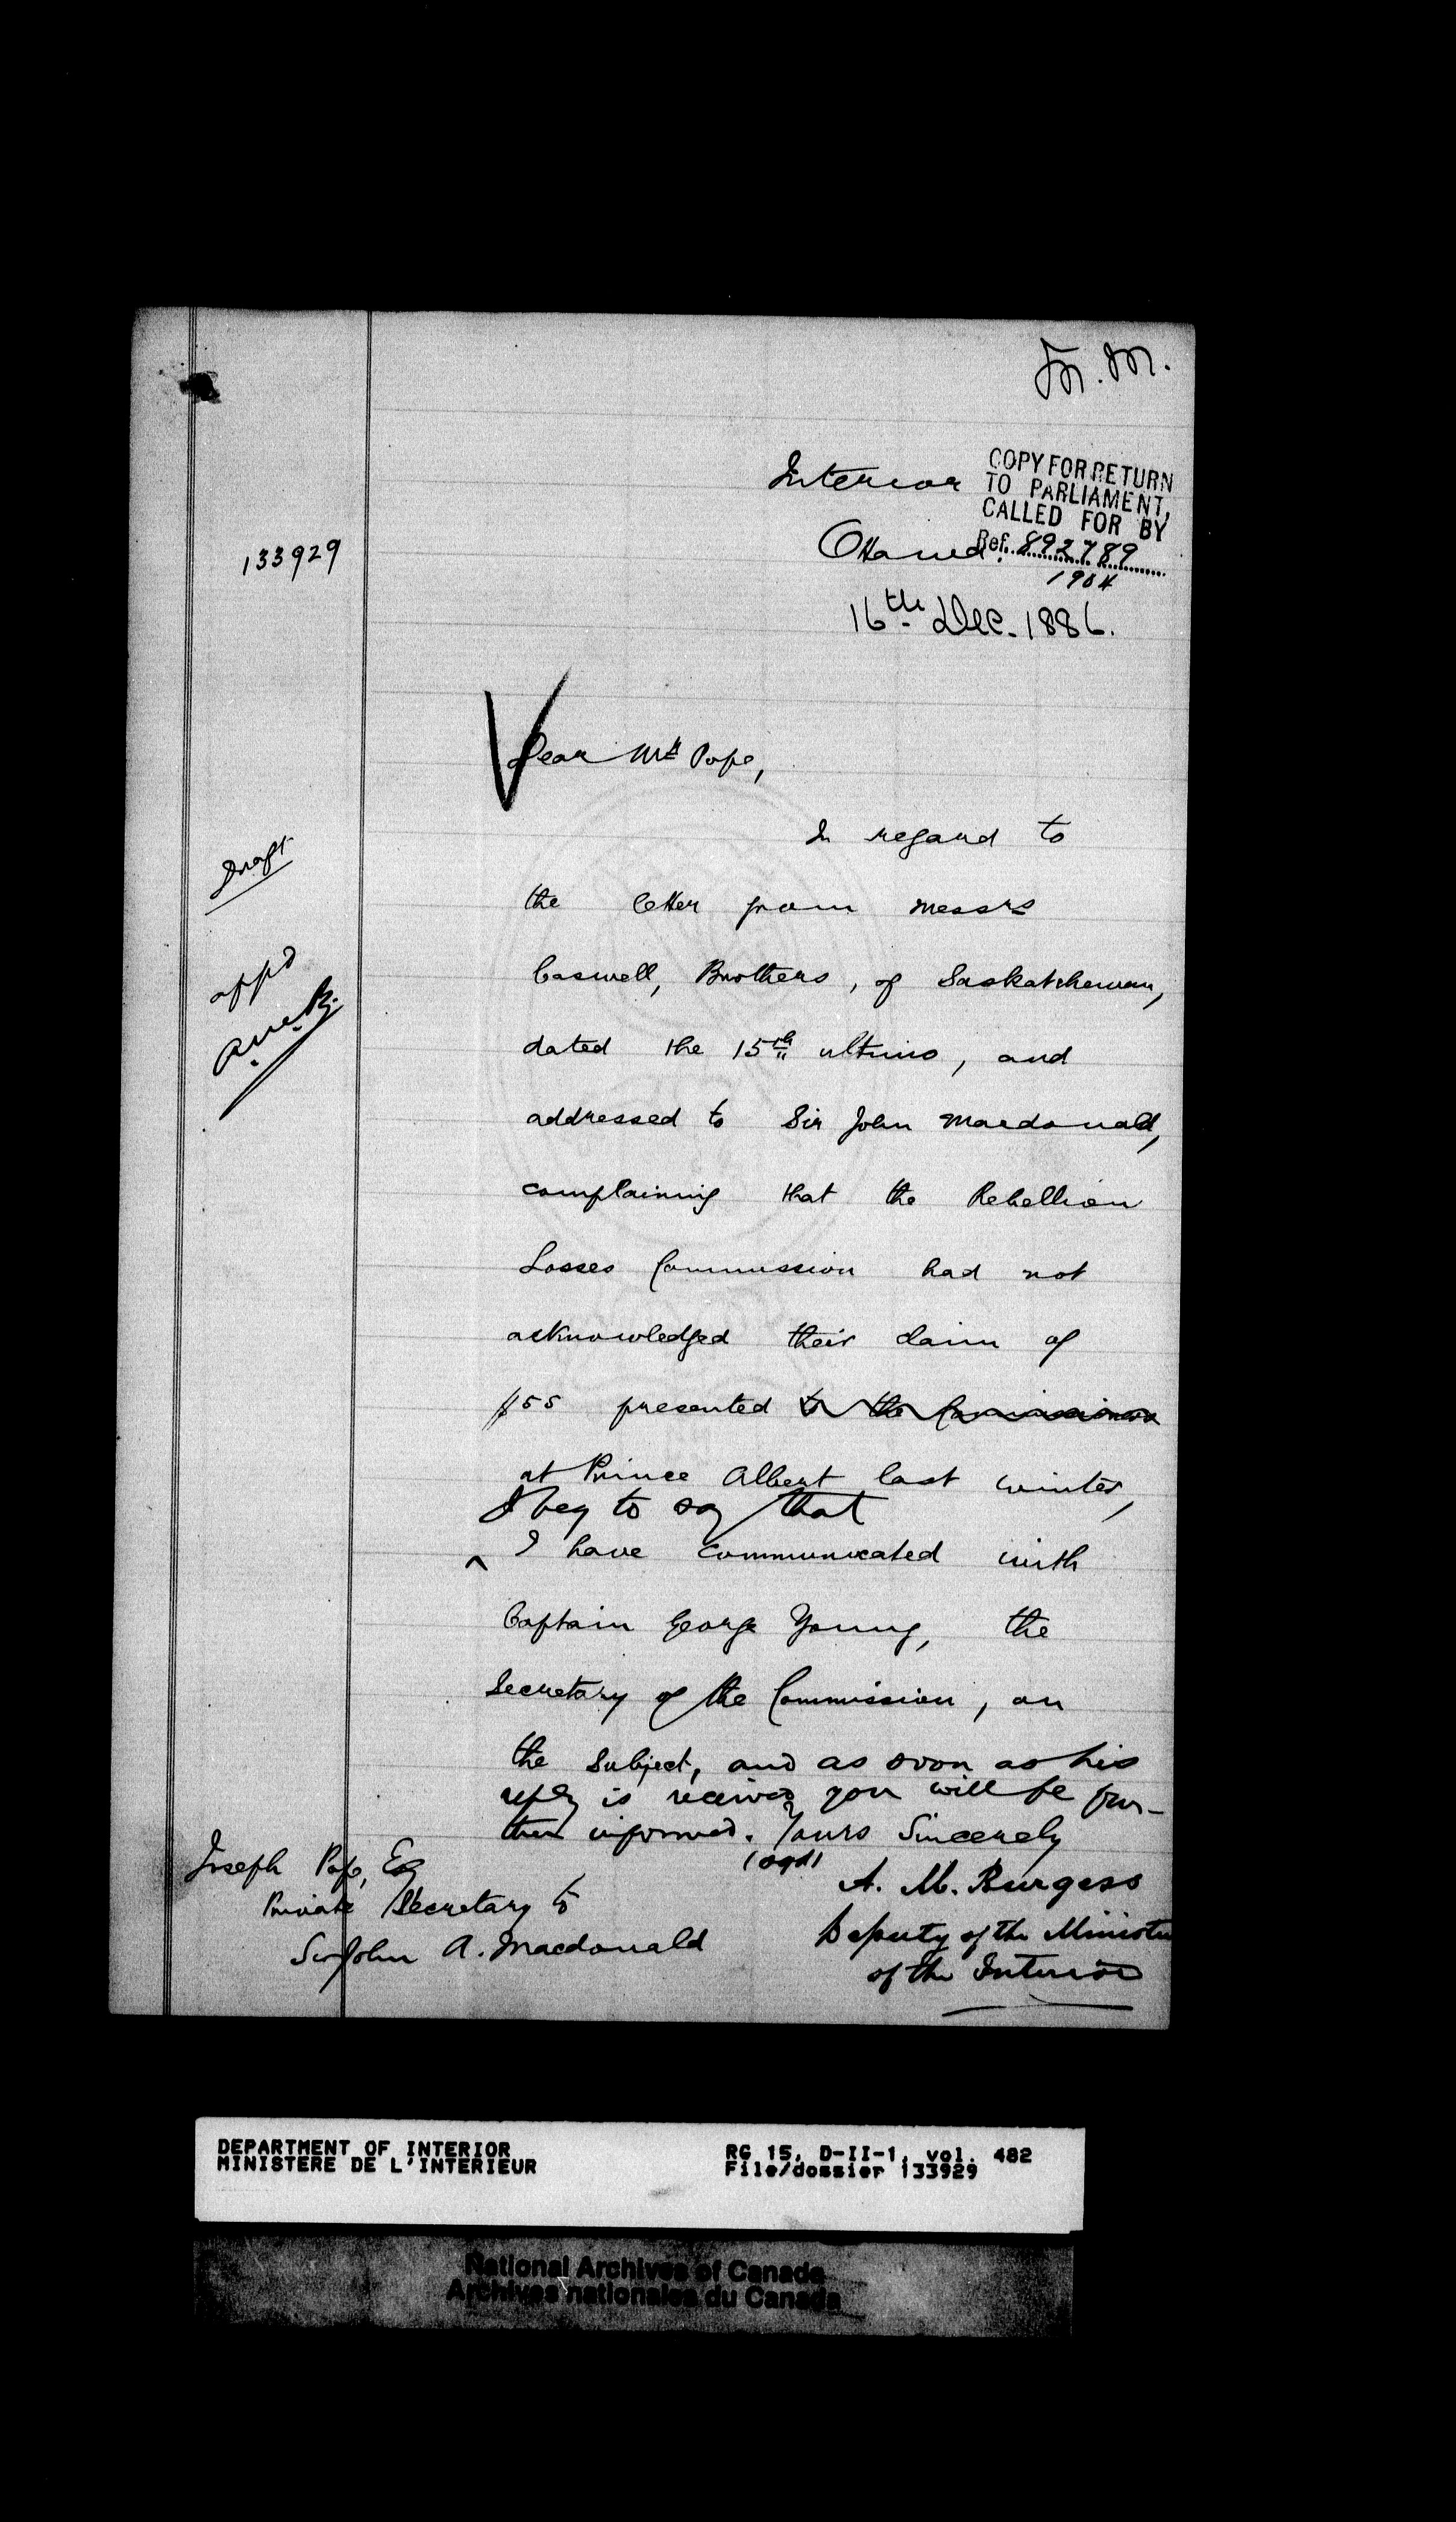 M.M.
Interior
COPY FOR RETURN
TO PARLIAMENT,
CALLED FOR BY
Ref. 892789
1904
Ottawa.
133929
16th Dec. 1886.
Dear Mr Pope,
In regard to
Draft
the letter from Messrs
app'd
Caswell, Brothers, of Saskatchewan,
A.M.B.
dated the 15th ultimo, and
addressed to Sir John Macdonald,
complaining that the Rebellion
Losses Commission had not
acknowledged their claim of
$55 presented to the Commissioners
at Prince Albert last winter,
I beg to say that
^ I have communicated with
Captain George Young, the
Secretary of the Commission, on
the subject, and as soon as his
reply is received you will be fur-
ther informed. Yours Sincerely
(sgd)
A. M. Burgess
Deputy of the Minister
of the Interior
Joseph Pope, Esq
Private Secretary to
Sir John A. Macdonald
DEPARTMENT OF INTERIOR
MINISTERE DE L'INTERIEUR
RG 15, D-II-1, vol. 482
File/dossier 133929
National Archives of Canada
Archives nationales du Canada